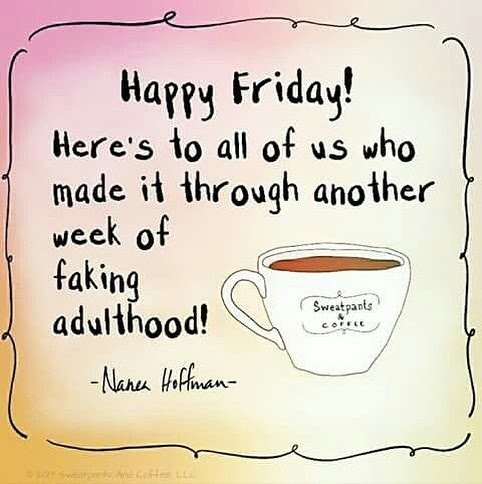 Happy Friday!
Here's to all of us who
made it through another
week of
faking
adulthood!
Sweatpants
&
COFFEE
-Nanea Hoffman-
© 2017 Sweatpants And Coffee LLC